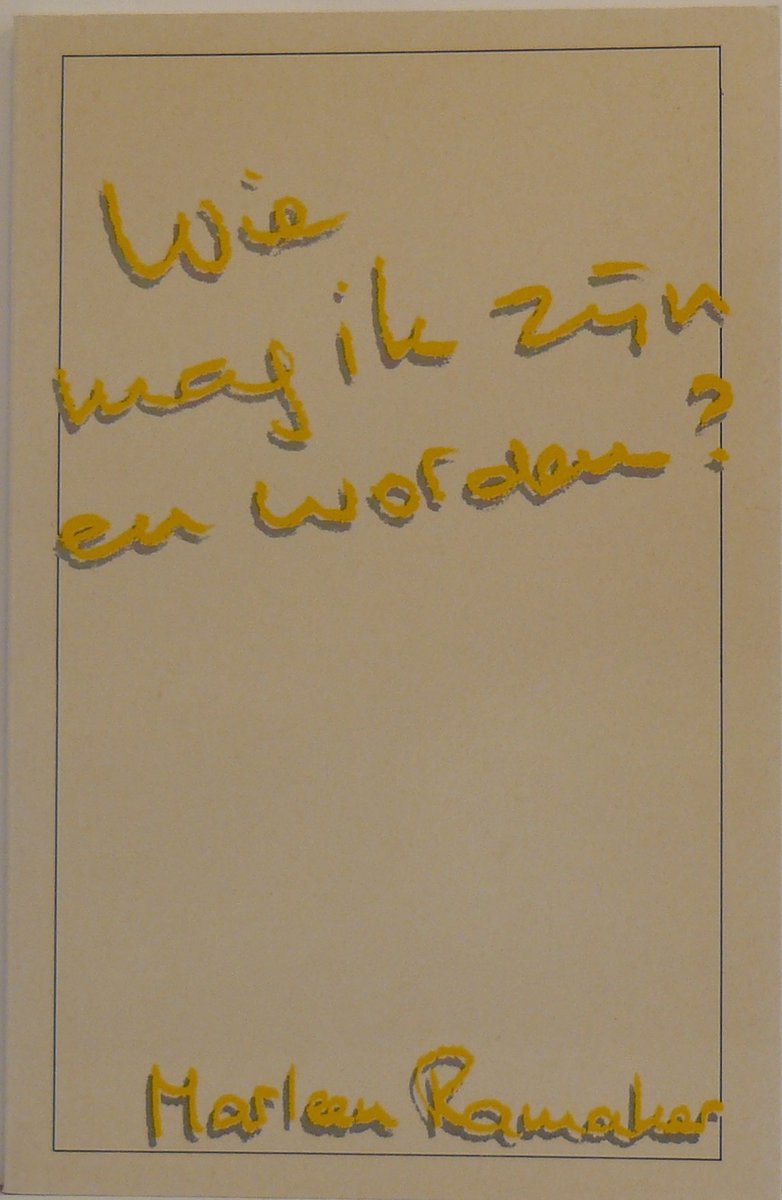 Wie
mag ik zijn
en worden?
Marleen Ramaker